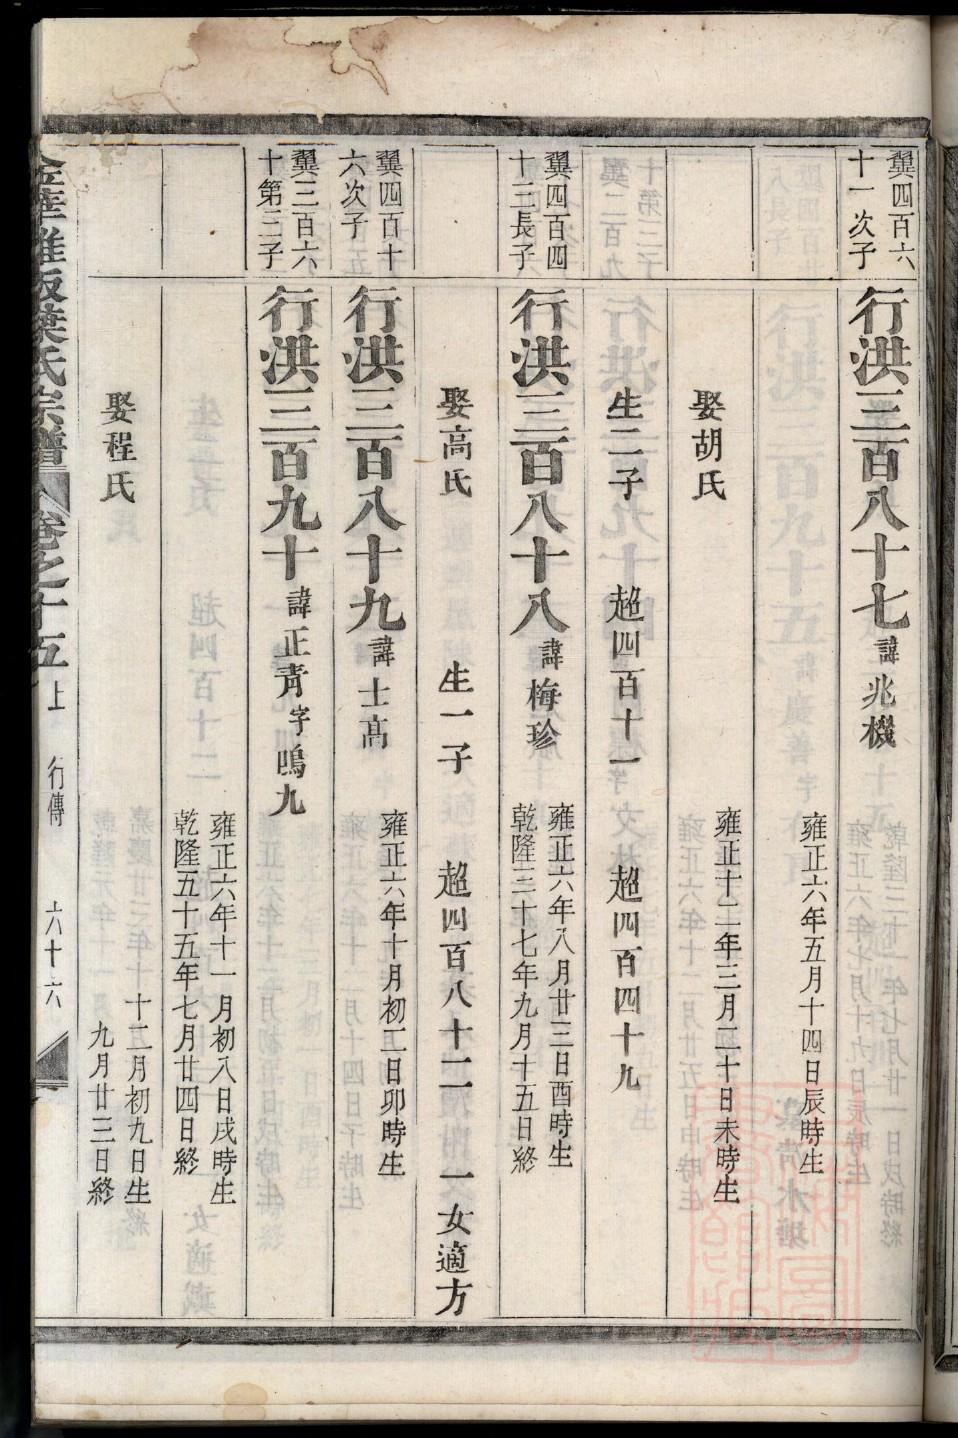 翼四百六
十一次子
行洪三百八十七 諱 兆機
雍正六年五月十四日辰時生
娶胡氏
雍正十二年三月二十日未時生
生二子 超四百十一 超四百四十九
翼四百四
十三長子
行洪三百八十八 諱 梅珍
雍正六年八月廿三日酉時生
乾隆三十七年九月十五日終
娶高氏 生一子 超四百八十二 一女適方
翼四百十
六次子
行洪三百八十九 諱 士高
雍正六年十月初二日卯時生
翼三百六
十第三子
行洪三百九十 諱 正青 字 鳴九
雍正六年十一月初八日戌時生
乾隆五十五年七月廿四日終
娶程氏
十二月初九日生
九月廿三日終
金華雅畈葉氏宗譜 卷之十五 上 行傳 六十六